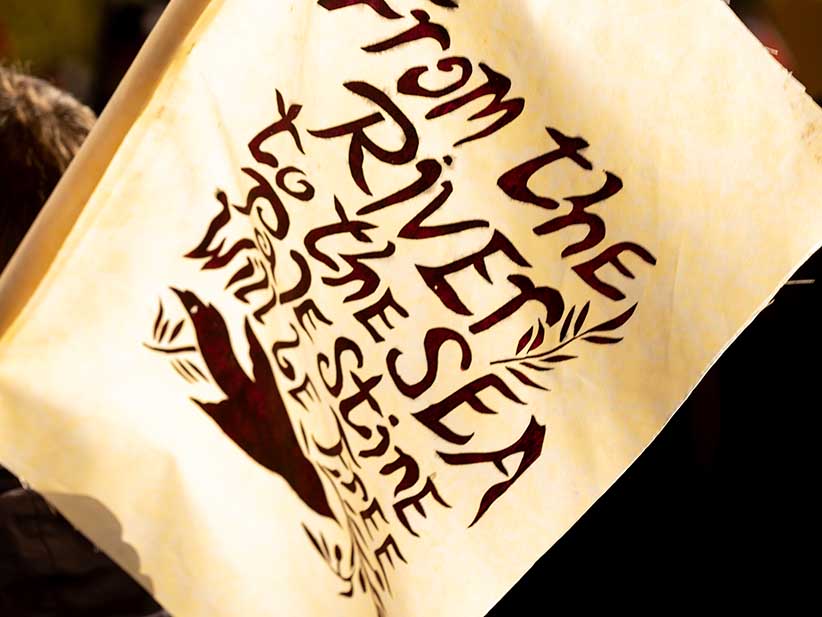 From the
RiVER
to the SEA
Palestine
Will BE FREE